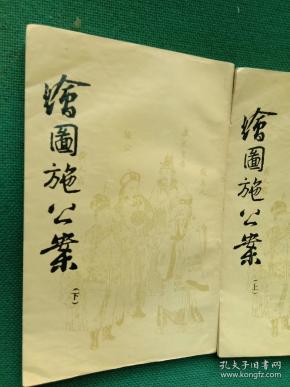 繪圖施公案
（下）
繪圖施公案
（上）
孔夫子旧书网